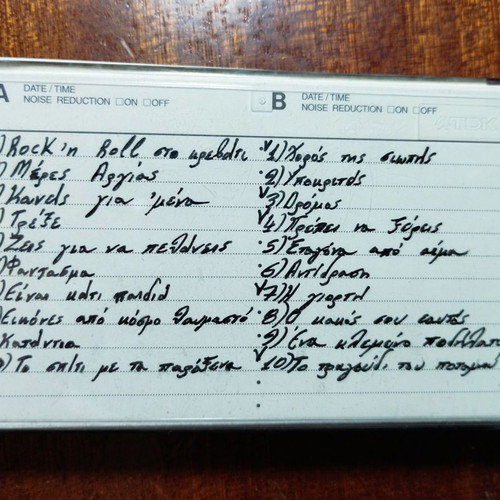 A DATE / TIME
NOISE REDUCTION □ON □OFF
B DATE / TIME
NOISE REDUCTION □ON □OFF
) Rock 'n Roll στο κρεβάτι
) Μέρες Αργίας
) Κανείς για 'μένα
) Τρέξε
) Ζεις για να πεθάνεις
) Φαντάσμα
) Είναι κάτι παιδιά
) Εικόνες από κόσμο θαυμαστό
Κατάντια
) Το σπίτι με τα παράξενα
1) Χορός της σιωπής
2) Υποκριτές
3) Δρόμος
4) Πρέπει να ξέρεις
5) Σταγόνα από αίμα
6) Αντίδραση
7) Η γιορτή
8) Ο κακός σου εαυτός
9) Ένα κλεμμένο ποδήλατο
10) Το τραγούδι του ποταμού